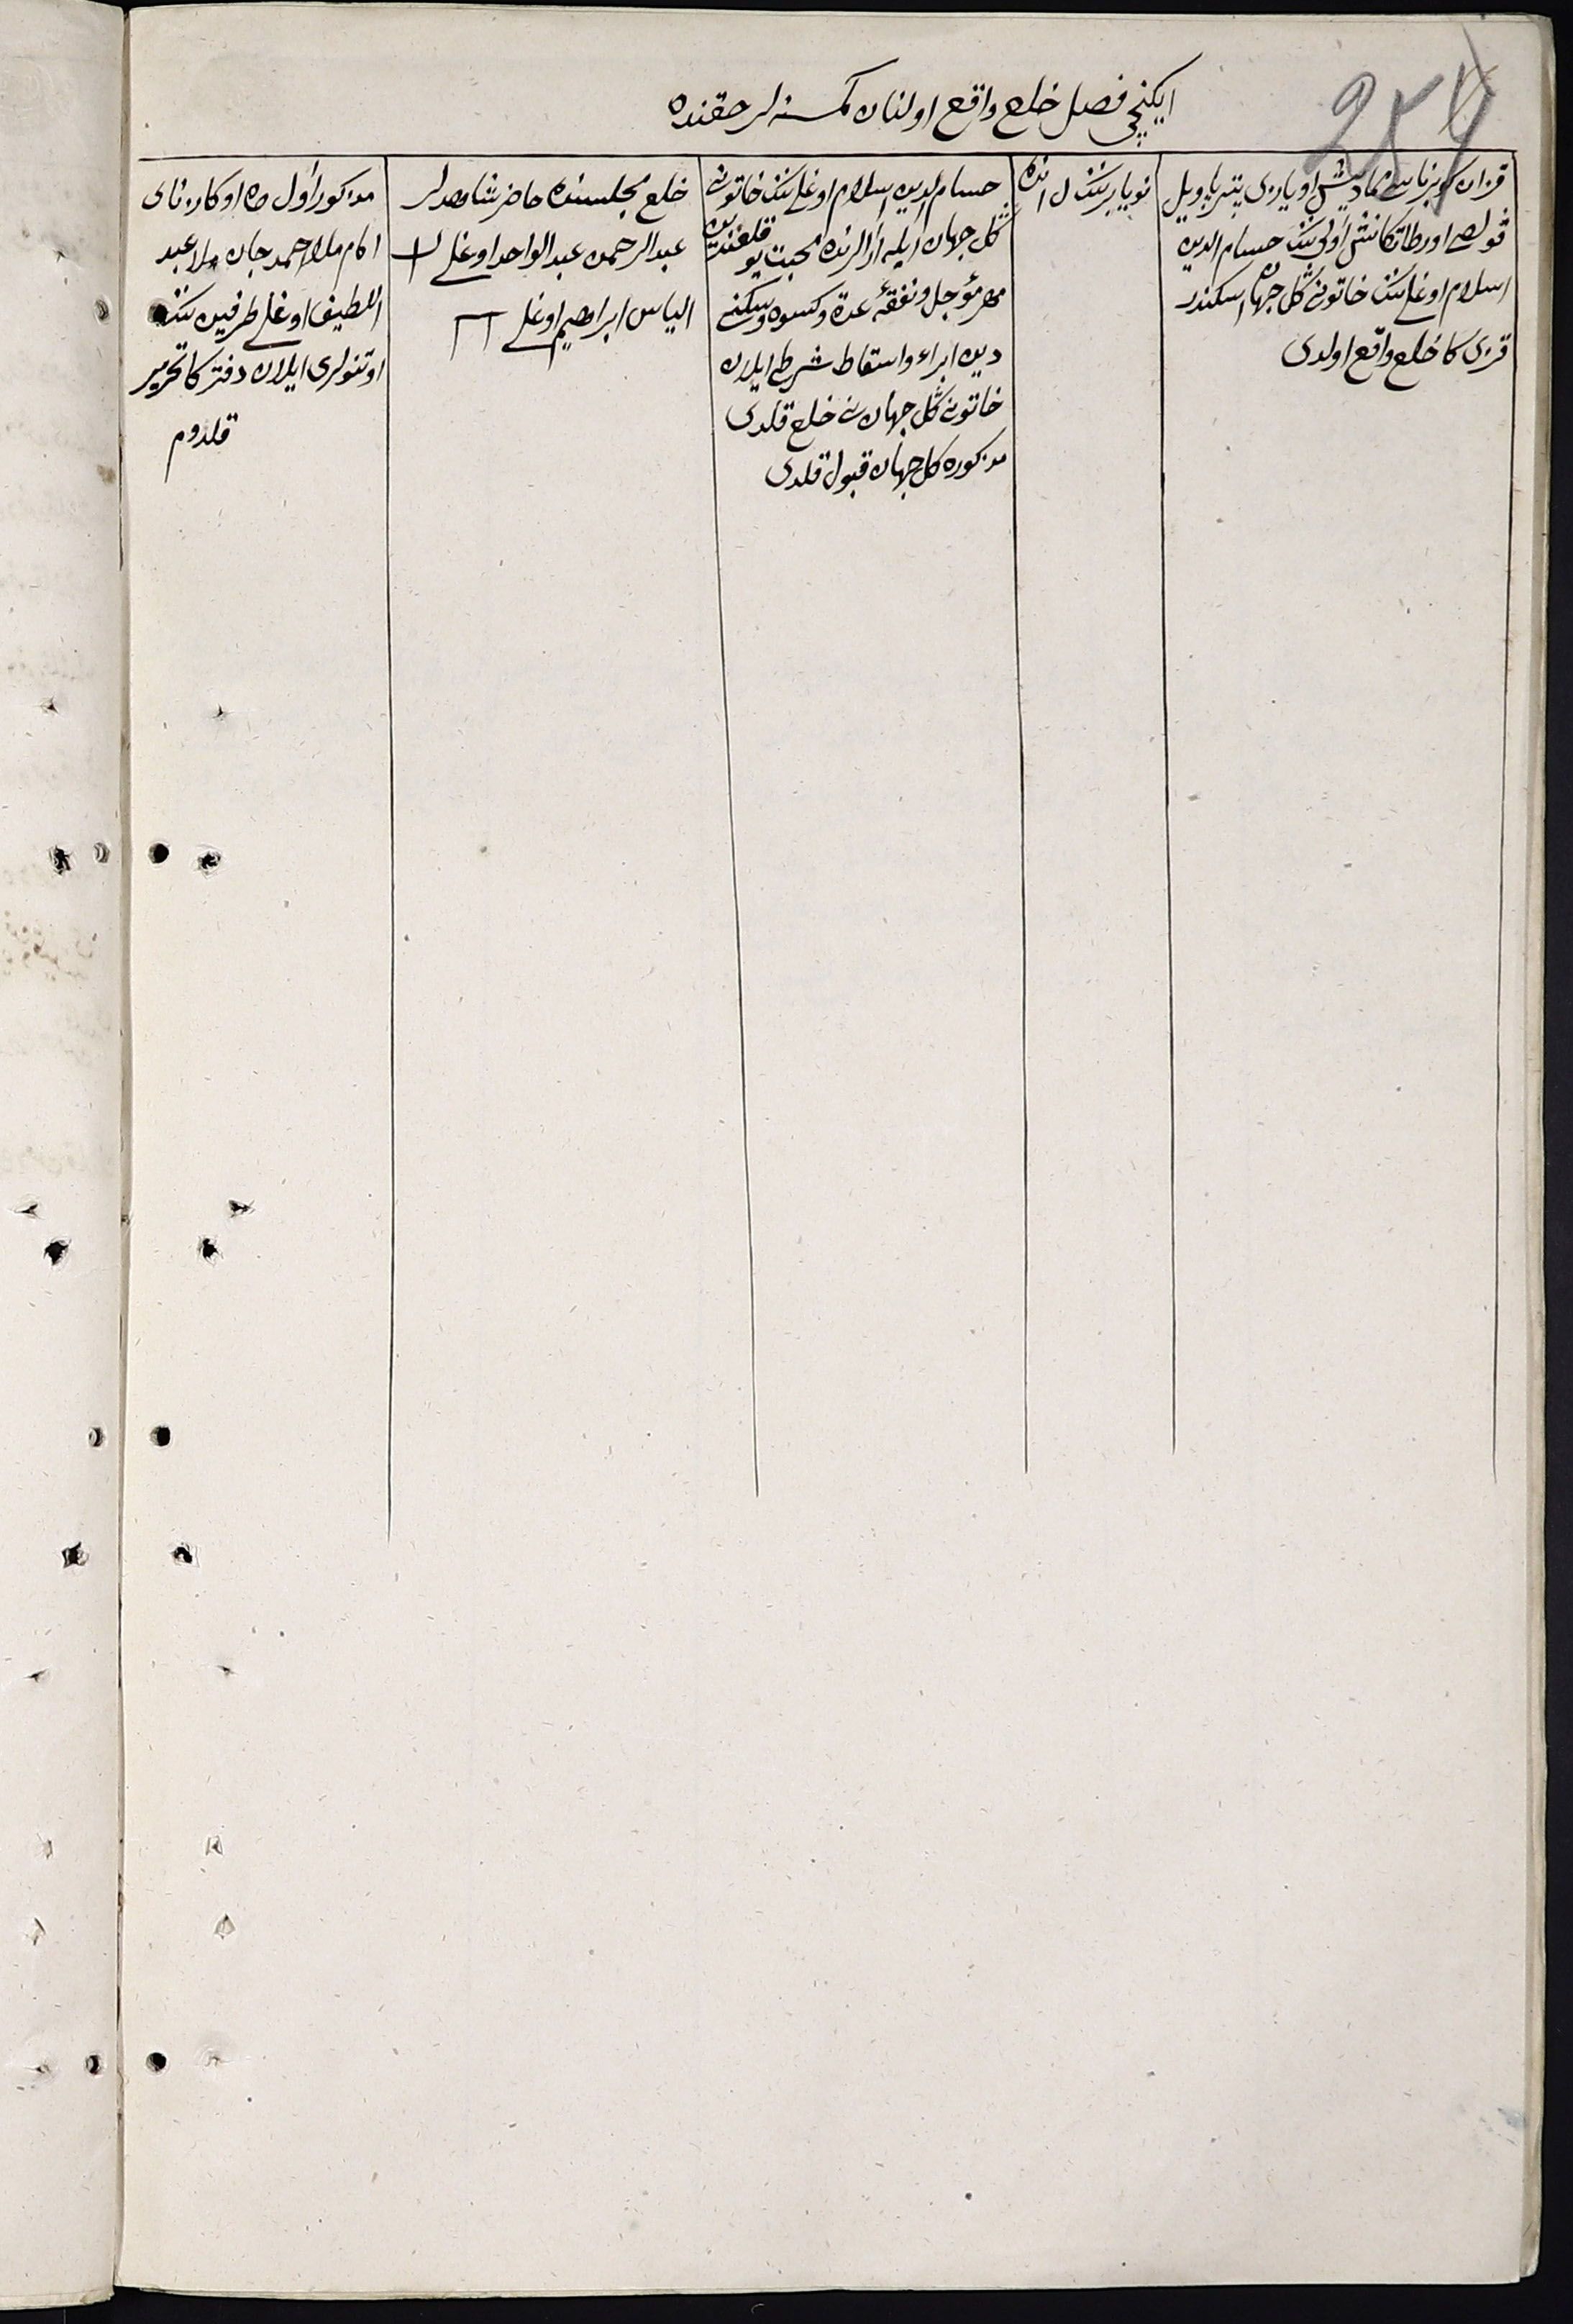 ایکنچی فصل خلع واقع اولنان کمسنه لر حقنده
قزان کوبرناسی مادیش اویازی
قولصه اورطا تکانش اولی ننک حسام الدین
اسلام اوغلی ننک خاتونی گل جهان اسکندر
قزی کا خلع واقع اولدی
نویابر ننک ل انده
حسام الدین اسلام اوغلی ننک خاتونی
گل جهان ایله ارالرنده محبت یوقلغندین
مهر مؤجل و نفقهٔ عدة و کسوه و سکنی
دین ابراء و اسقاط شرطی ایلان
خاتونی گل جهان نی خلع قلدی
مذکوره کل جهان قبول قلدی
خلع مجلسنده حاضر شاهدلر
عبد الرحمن عبد الواحد اوغلی
الیاس ابراهیم اوغلی
مذکور اول ده اوکازنای
امام ملا احمد جان ملا عبد
اللطیف اوغلی طرفین ننک
اوتنولری ایلان دفتر کا تحریر
قلدوم